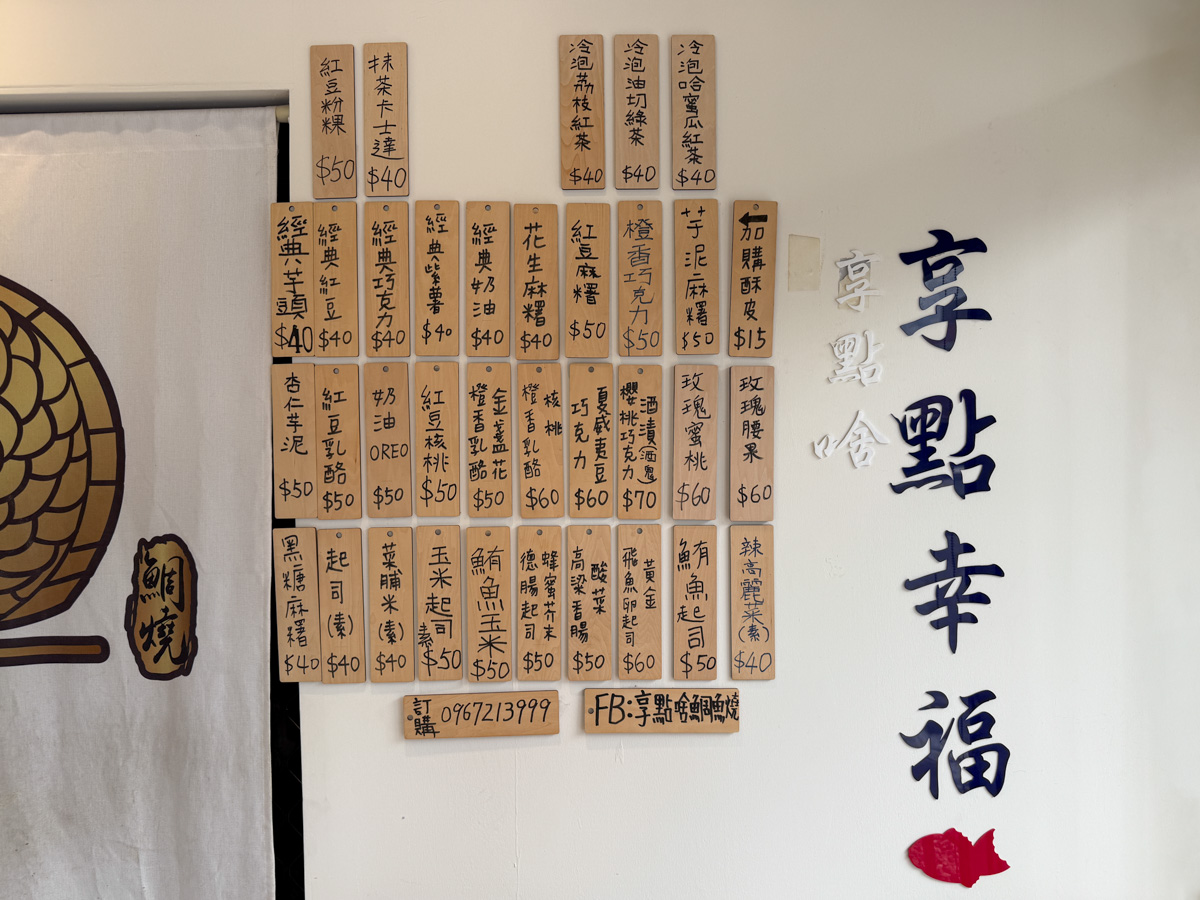 紅豆粉粿 $50
抹茶卡士達 $40
冷泡荔枝紅茶 $40
冷泡油切綠茶 $40
冷泡哈蜜瓜紅茶 $40
經典芋頭 $40
經典紅豆 $40
經典巧克力 $40
經典紫薯 $40
經典奶油 $40
花生麻糬 $40
紅豆麻糬 $50
橙香巧克力 $50
芋泥麻糬 $50
加購酥皮 $15
杏仁芋泥 $50
紅豆乳酪 $50
奶油OREO $50
紅豆核桃 $50
金盞花橙香乳酪 $50
核桃橙香乳酪 $60
夏威夷豆巧克力 $60
酒漬(酒鬼)櫻桃巧克力 $70
玫瑰蜜桃 $60
玫瑰腰果 $60
黑糖麻糬 $40
起司(素) $40
菜脯米(素) $40
玉米起司素 $50
鮪魚玉米 $50
蜂蜜芥末德腸起司 $50
酸菜高梁香腸 $50
黃金飛魚卵起司 $60
鮪魚起司 $50
辣高麗菜(素) $40
訂購 0967213999
FB:享點啥鯛魚燒
享點啥
享點幸福
鯛燒